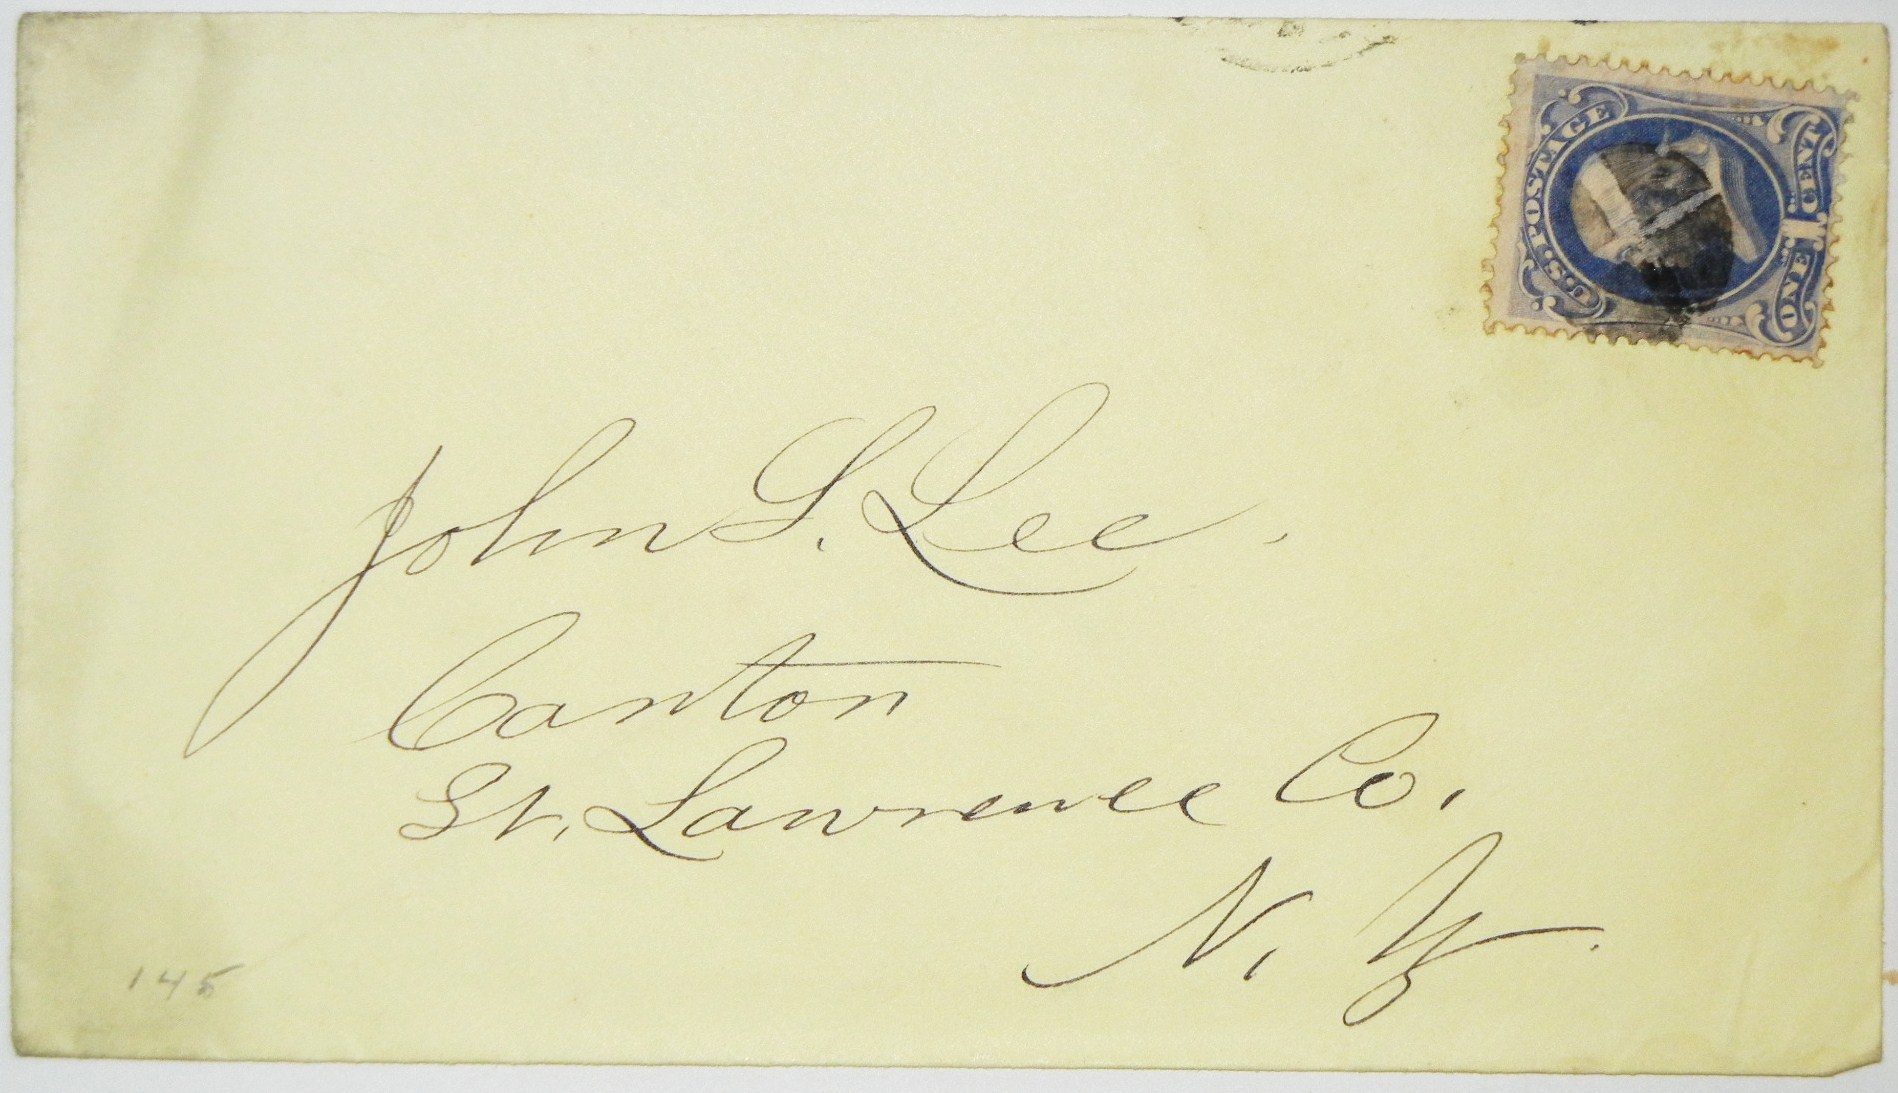 U.S. POSTAGE
ONE 1 CENT
John S. Lee.
Canton
St. Lawrence Co.
N. Y.
145